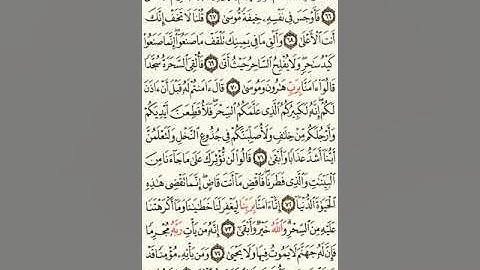 ٦٦ فَأَوْجَسَ فِي نَفْسِهِۦ خِيفَةً مُّوسَىٰ ٦٧ قُلْنَا لَا تَخَفْ إِنَّكَ
أَنتَ ٱلْأَعْلَىٰ ٦٨ وَأَلْقِ مَا فِي يَمِينِكَ تَلْقَفْ مَا صَنَعُوٓا۟ إِنَّمَا صَنَعُوا۟
كَيْدُ سَٰحِرٍ وَلَا يُفْلِحُ ٱلسَّاحِرُ حَيْثُ أَتَىٰ ٦٩ فَأُلْقِيَ ٱلسَّحَرَةُ سُجَّدًا
قَالُوٓا۟ ءَامَنَّا بِرَبِّ هَٰرُونَ وَمُوسَىٰ ٧٠ قَالَ ءَامَنتُمْ لَهُۥ قَبْلَ أَنْ ءَاذَنَ
لَكُمْ إِنَّهُۥ لَكَبِيرُكُمُ ٱلَّذِي عَلَّمَكُمُ ٱلسِّحْرَ فَلَأُقَطِّعَنَّ أَيْدِيَكُمْ
وَأَرْجُلَكُم مِّنْ خِلَٰفٍ وَلَأُصَلِّبَنَّكُمْ فِي جُذُوعِ ٱلنَّخْلِ وَلَتَعْلَمُنَّ
أَيُّنَآ أَشَدُّ عَذَابًا وَأَبْقَىٰ ٧١ قَالُوا۟ لَن نُّؤْثِرَكَ عَلَىٰ مَا جَآءَنَا مِنَ
ٱلْبَيِّنَٰتِ وَٱلَّذِي فَطَرَنَا فَٱقْضِ مَآ أَنتَ قَاضٍ إِنَّمَا تَقْضِي هَٰذِهِ
ٱلْحَيَوٰةَ ٱلدُّنْيَآ ٧٢ إِنَّآ ءَامَنَّا بِرَبِّنَا لِيَغْفِرَ لَنَا خَطَٰيَٰنَا وَمَآ أَكْرَهْتَنَا
عَلَيْهِ مِنَ ٱلسِّحْرِ وَٱللَّهُ خَيْرٌ وَأَبْقَىٰٓ ٧٣ إِنَّهُۥ مَن يَأْتِ رَبَّهُۥ مُجْرِمًا
فَإِنَّ لَهُۥ جَهَنَّمَ لَا يَمُوتُ فِيهَا وَلَا يَحْيَىٰ ٧٤ وَمَن يَأْتِهِۦ مُؤْمِنًا قَدْ